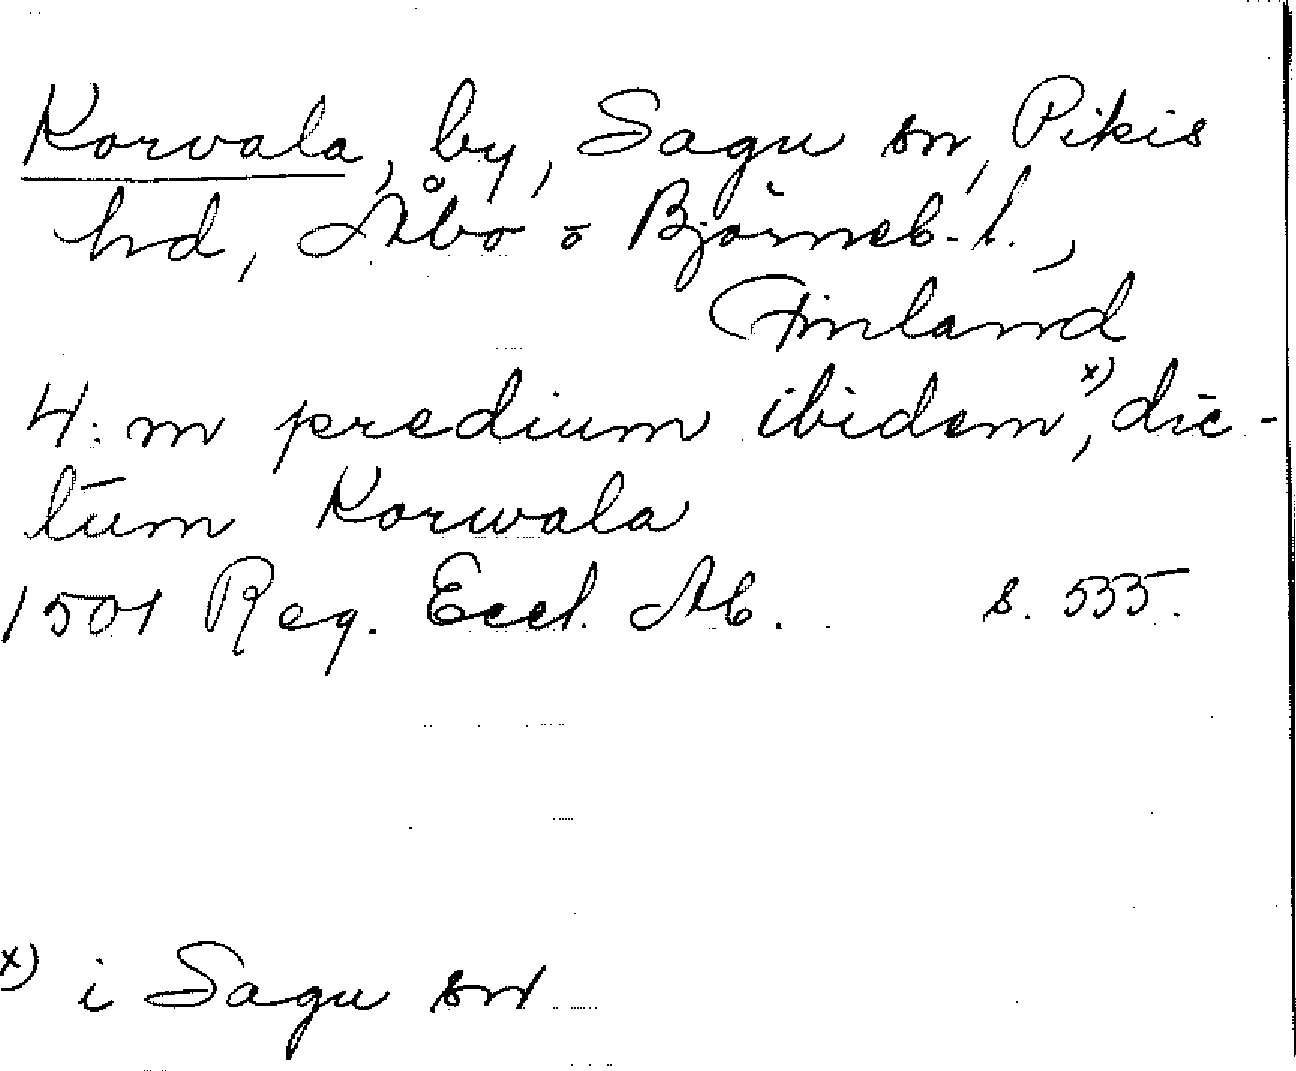 Korvala, by, Sagu sn, Pikis
hd, Åbo o Björneb. l.,
Finland
4:m predium ibidem x), dic-
tum Korwala
1501 Reg. Eccl. Ab. s. 535.
x) i Sagu sn